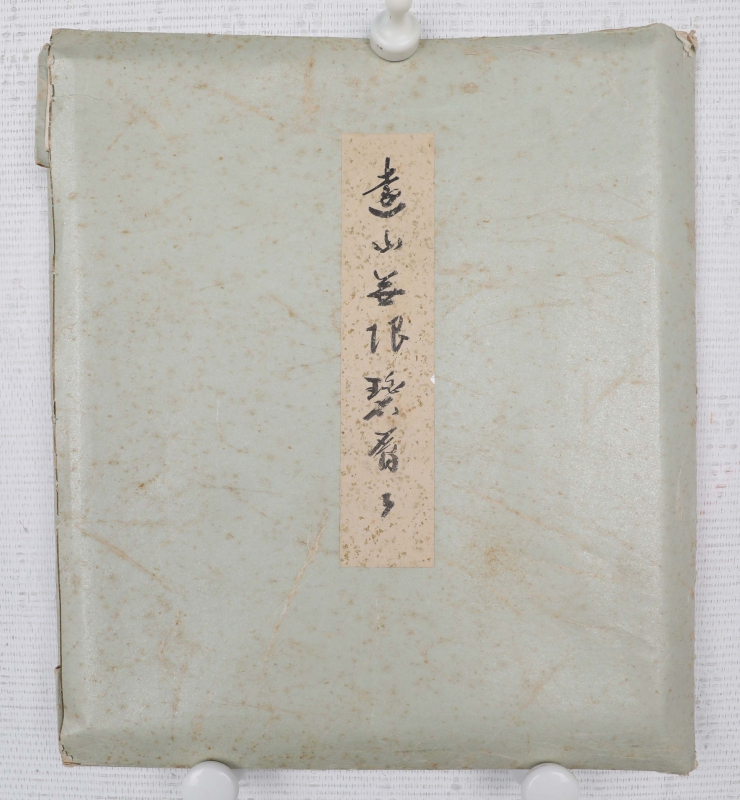 遠山無限碧層々